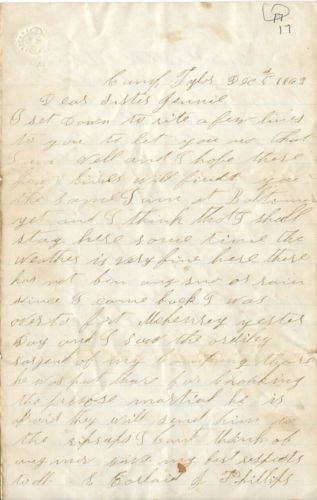 17
Camp Tyler Dec 1863
Dear Sister Jennie
I set down to rite a few lines
to you to let you no that
I am well and I hope these
few lines will find you
the same I am at Baltimore
yet and I think that I shall
stay here some time the
weather is very fine here there
has not ben any sno or rain
since I came back I was
over to fort Mchenrey yester
day and I saw the
of my thare
he was put thar for
the martial he is
afraid they will send him to
the I cant think of
any mor give my best respects
to all E of Phillips